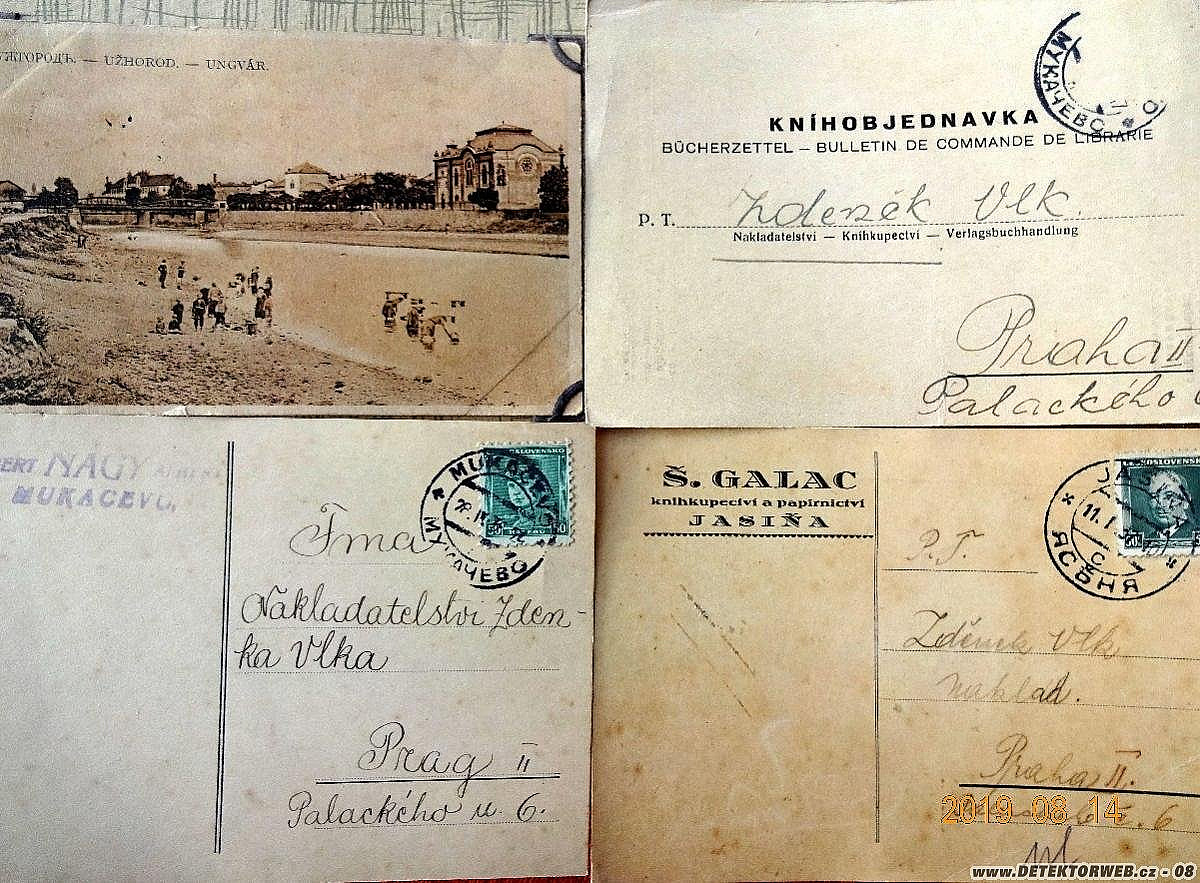 УЖГОРОДЪ. — UŽHOROD. — UNGVÁR.
МУКАЧЕВО
KNÍHOBJEDNAVKA
BÜCHERZETTEL — BULLETIN DE COMMANDE DE LIBRARIE
P. T. Zdeněk Vlk.
Nakladatelství — Kníhkupectví — Verlagsbuchhandlung
Praha II
Palackého
NAGY
MUKAČEVO
MUKAČEVO
МУКАЧЕВО
Fma
Nakladatelstvi Zden-
ka Vlka
Prag II
Palackého u. 6.
Š. GALAC
knihkupectví a papírnictví
JASIŇA
ЯСѢНЯ
11. I
C
P. T.
Zděnek Vlk
naklad.
Praha II.
6
2019 08 14
www.DETEKTORWEB.cz - 08